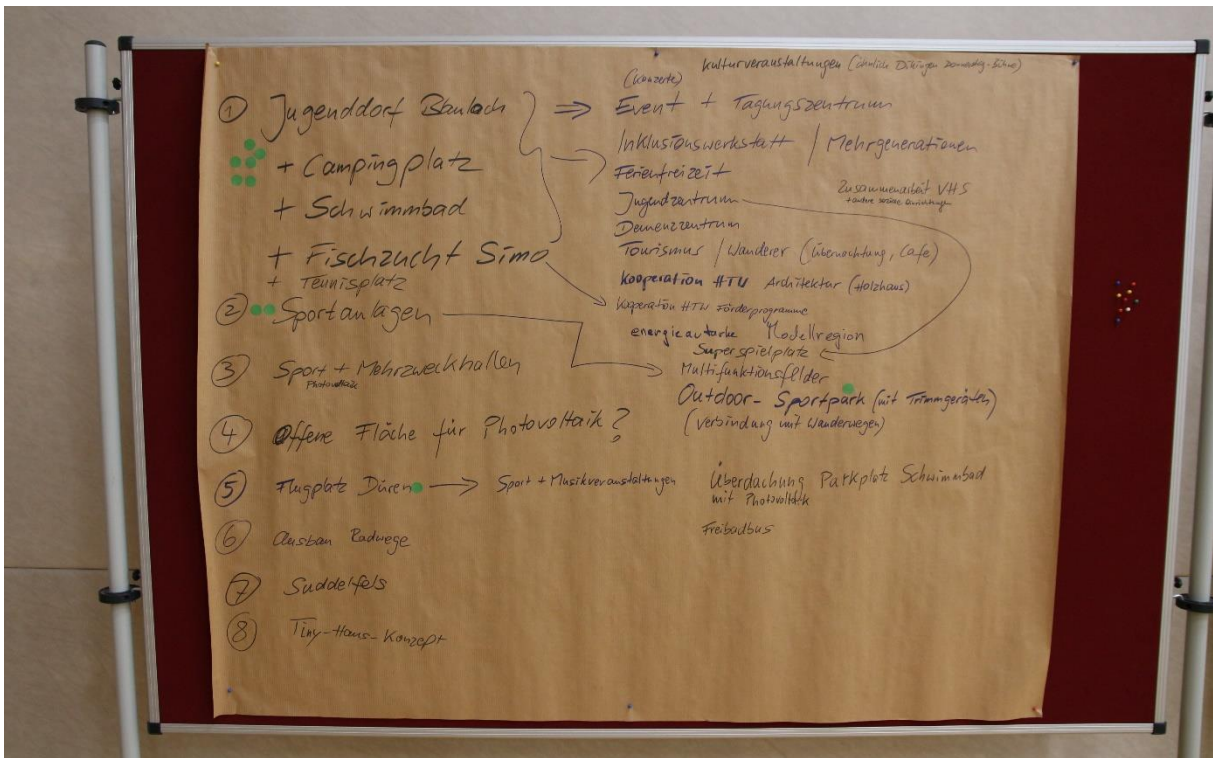 ① Jugenddorf Bäulach
+ Campingplatz
+ Schwimmbad
+ Fischzucht Simo
+ Tennisplatz
② Sportanlagen
③ Sport + Mehrzweckhallen
Photovoltaik
④ Offene Fläche für Photovoltaik?
⑤ Flugplatz Düren → Sport + Musikveranstaltungen
⑥ Ausbau Radwege
⑦ Suddelfels
⑧ Tiny-Haus-Konzept
Kulturveranstaltungen (ähnlich
(Konzerte)
⇒ Event + Tagungszentrum
Inklusionswerkstatt / Mehrgenerationen
Ferienfreizeit
Jugendzentrum
Zusammenarbeit VHS
+ andere soziale Einrichtungen
Demenzzentrum
Tourismus / Wanderer (Übernachtung, Cafe)
Kooperation HTW Architektur (Holzhaus)
Kooperation HTW Förderprogramme
energieautarke Modellregion
Superspielplatz
Multifunktionsfelder
Outdoor-Sportpark (mit Trimmgeräten)
(Verbindung mit Wanderwegen)
Überdachung Parkplatz Schwimmbad
mit Photovoltaik
Freibadbus